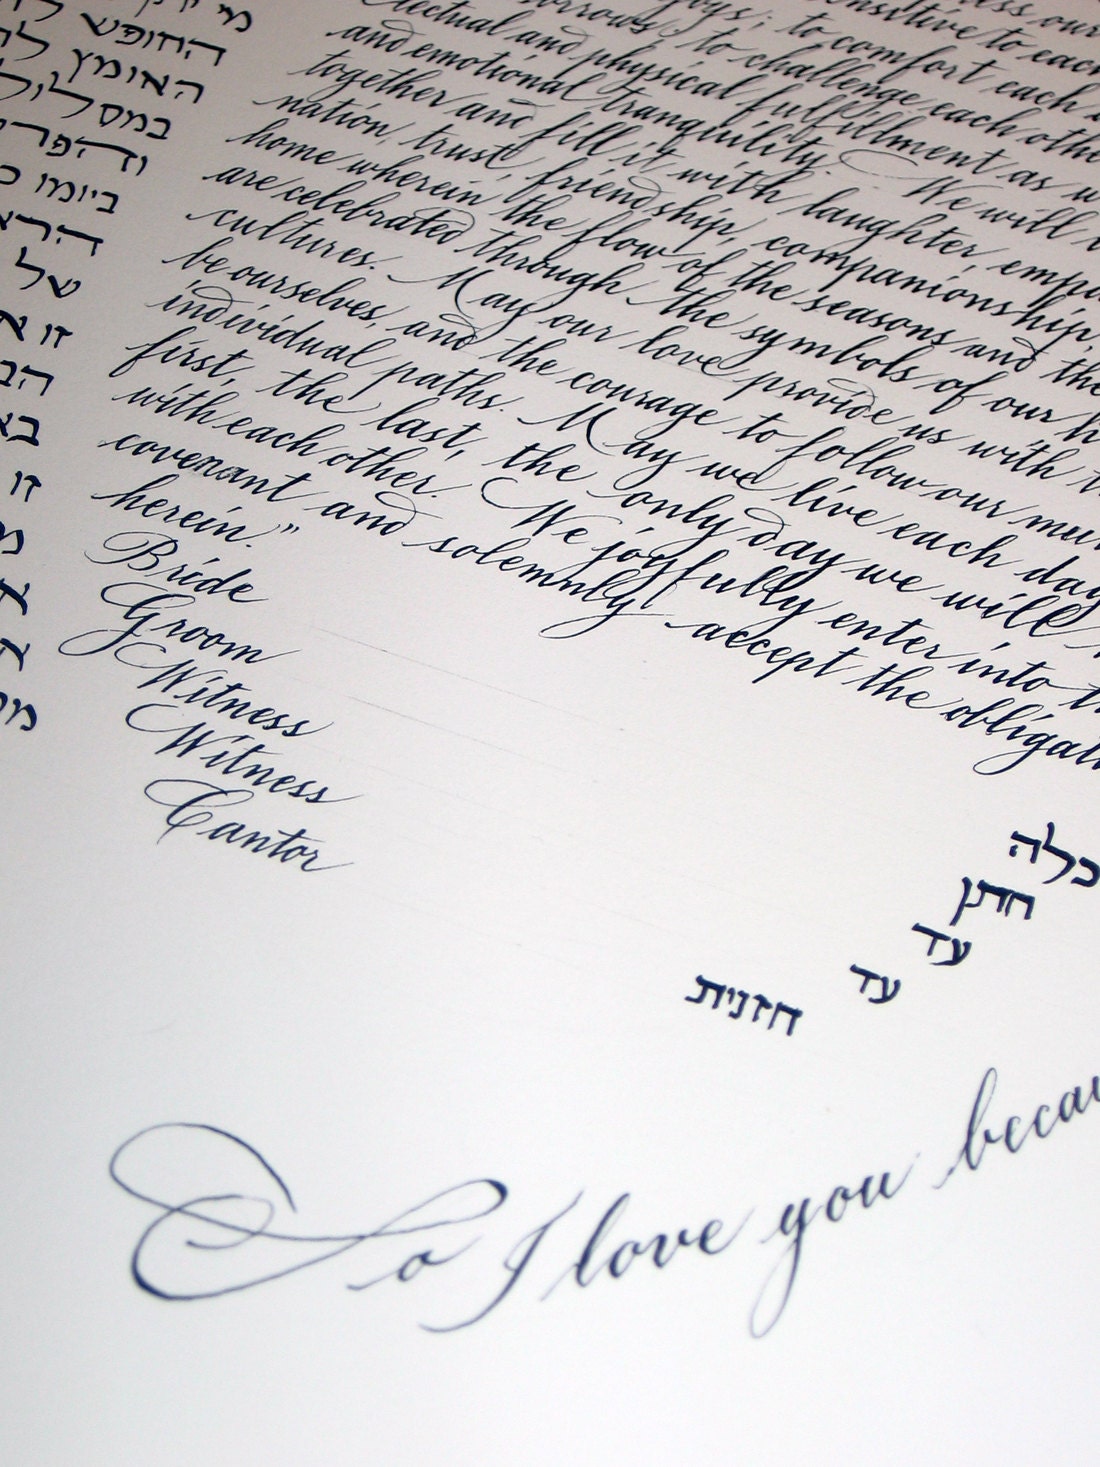 החופש
האומץ
במסלול
ביומו
על
זו
זו
joys; to comfort each
sorrows; to challenge each othe
lectual and physical fulfillment as
and emotional tranquility. We will
together and fill it with laughter, empa
nation, trust, friendship, companionship,
home wherein the flow of the seasons and the
are celebrated through the symbols of our h
cultures. May our love provide us with t
be ourselves, and the courage to follow our mut
individual paths. May we live each day
first, the last, the only day we will
with each other. We joyfully enter into th
covenant and solemnly accept the obligati
herein."
Bride
Groom
Witness
Witness
Cantor
כלה
חתן
עד
עד
חזנית
So I love you becau